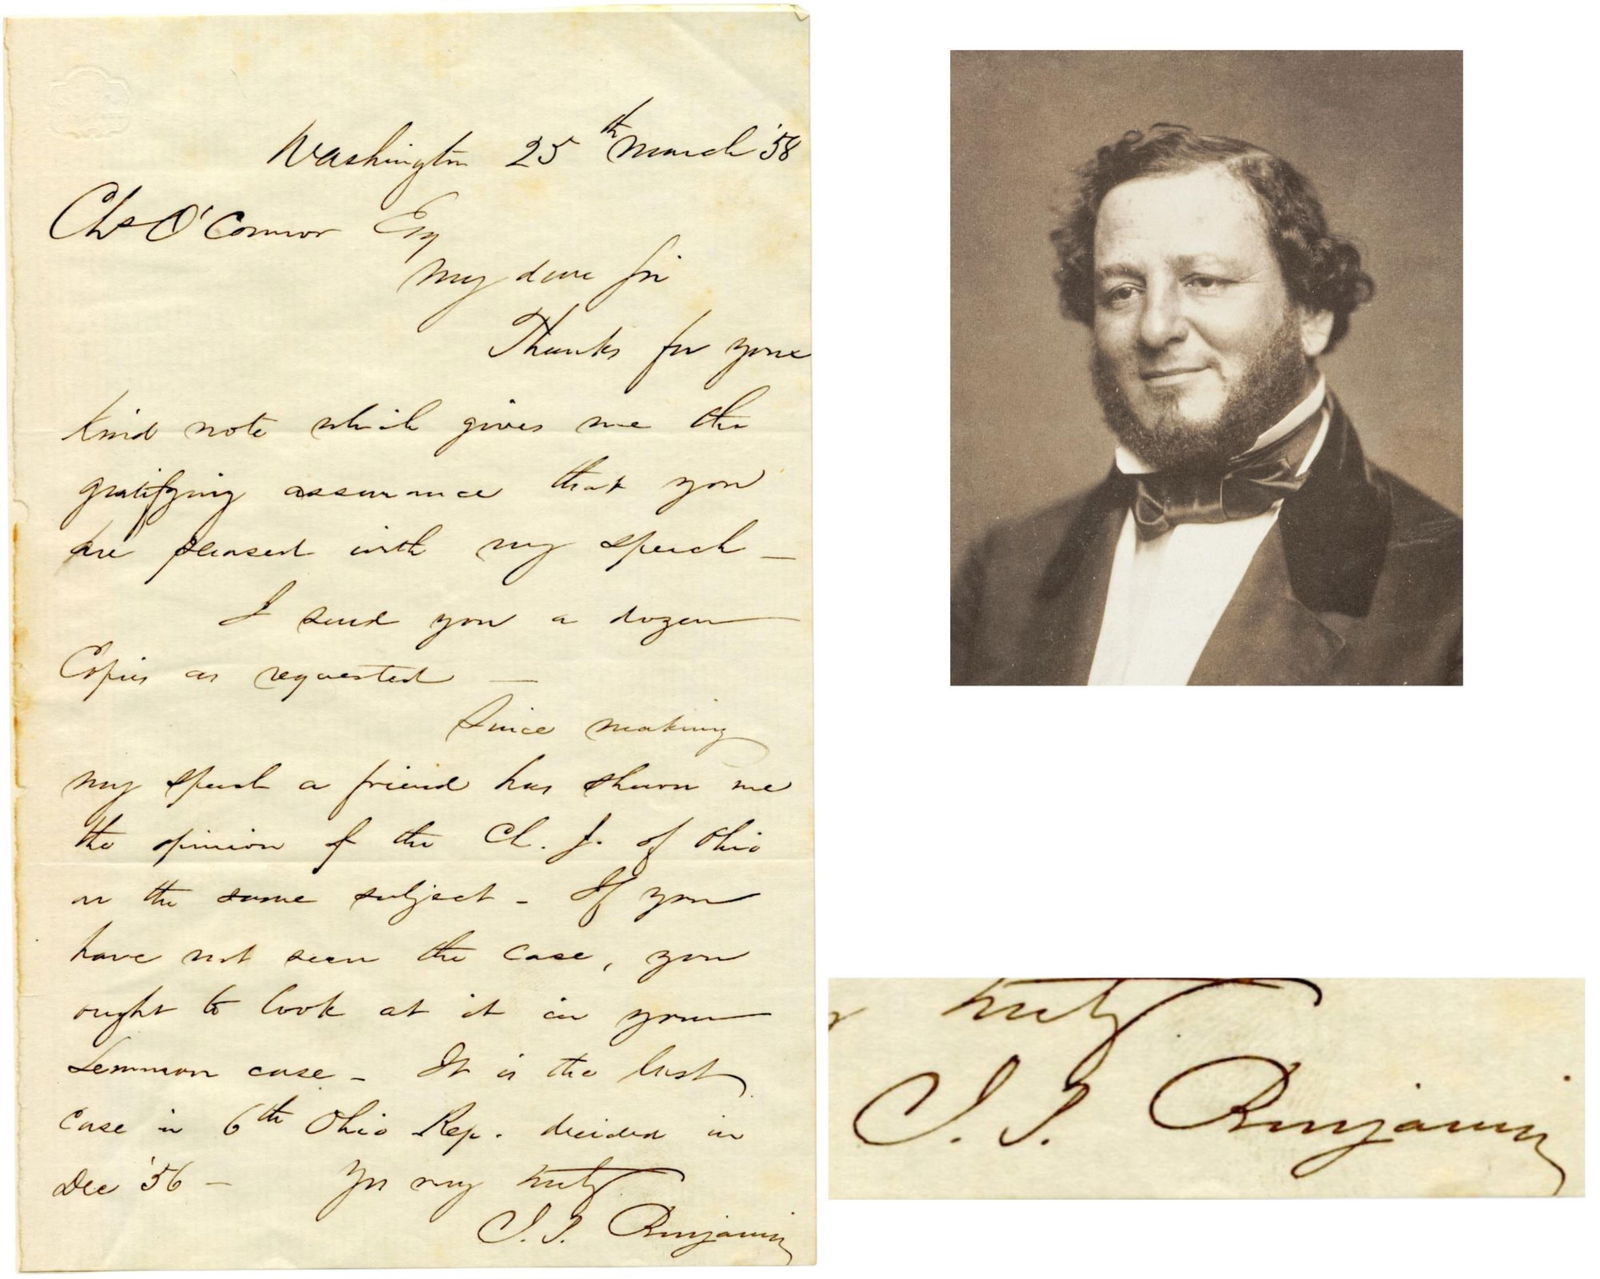 Washington 25th March '58
Chs O'Conor Esq
My dear Sir
Thanks for your
kind note which gives me the
gratifying assurance that you
are pleased with my speech —
I send you a dozen
Copies as requested —
Since making
my speech a friend has shown me
the opinion of the Ch. J. of Ohio
on the same subject - If you
have not seen the case, you
ought to look at it in your
Lemmon case - It is the last
case in 6th Ohio Rep. decided in
Dec '56 - Yrs very truly
J. P. Benjamin
truly
J. P. Benjamin